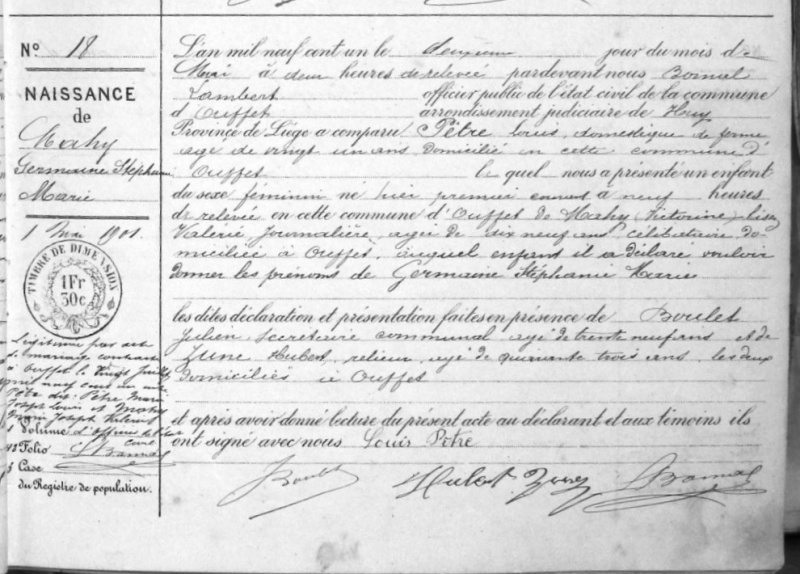 N° 18
NAISSANCE
de
Mahy
Germaine Stéphanie
Marie
1 Mai 1901.
TIMBRE DE DIMENSION
1 Fr
30c
Légitimée par acte
de mariage contracté
à Ouffet le vingt
Pétre
Joseph Louis et Mahy
1 Volume
Folio
5 Case
du Registre de population.
L'an mil neuf cent un le deuxième jour du mois de
Mai à deux heures de relevée pardevant nous Bonnal
Lambert officier public de l'état civil de la commune
d'Ouffet arrondissement judiciaire de Huy
Province de Liége a comparu Pètre Louis, domestique de ferme
agé de vingt un ans domicilié en cette commune d'
Ouffet lequel nous a présenté un enfant
du sexe féminin né hier premier courant à neuf heures
de relevée en cette commune d'Ouffet de Mahy Victorine
Valérie, Journalière, agée de dix neuf ans célibataire do-
miciliée à Ouffet, auquel enfant il a déclaré vouloir
donner les prénoms de Germaine Stéphanie Marie
les dites déclaration et présentation faites en présence de Boulet
Julien, Secrétaire communal agé de trente neuf ans et de
Zune Hubert, relieur, agé de quarante trois ans, les deux
domiciliés à Ouffet
et après avoir donné lecture du présent acte au déclarant et aux témoins ils
ont signé avec nous Louis Pètre
Boulet Hubert Zune Bonnal